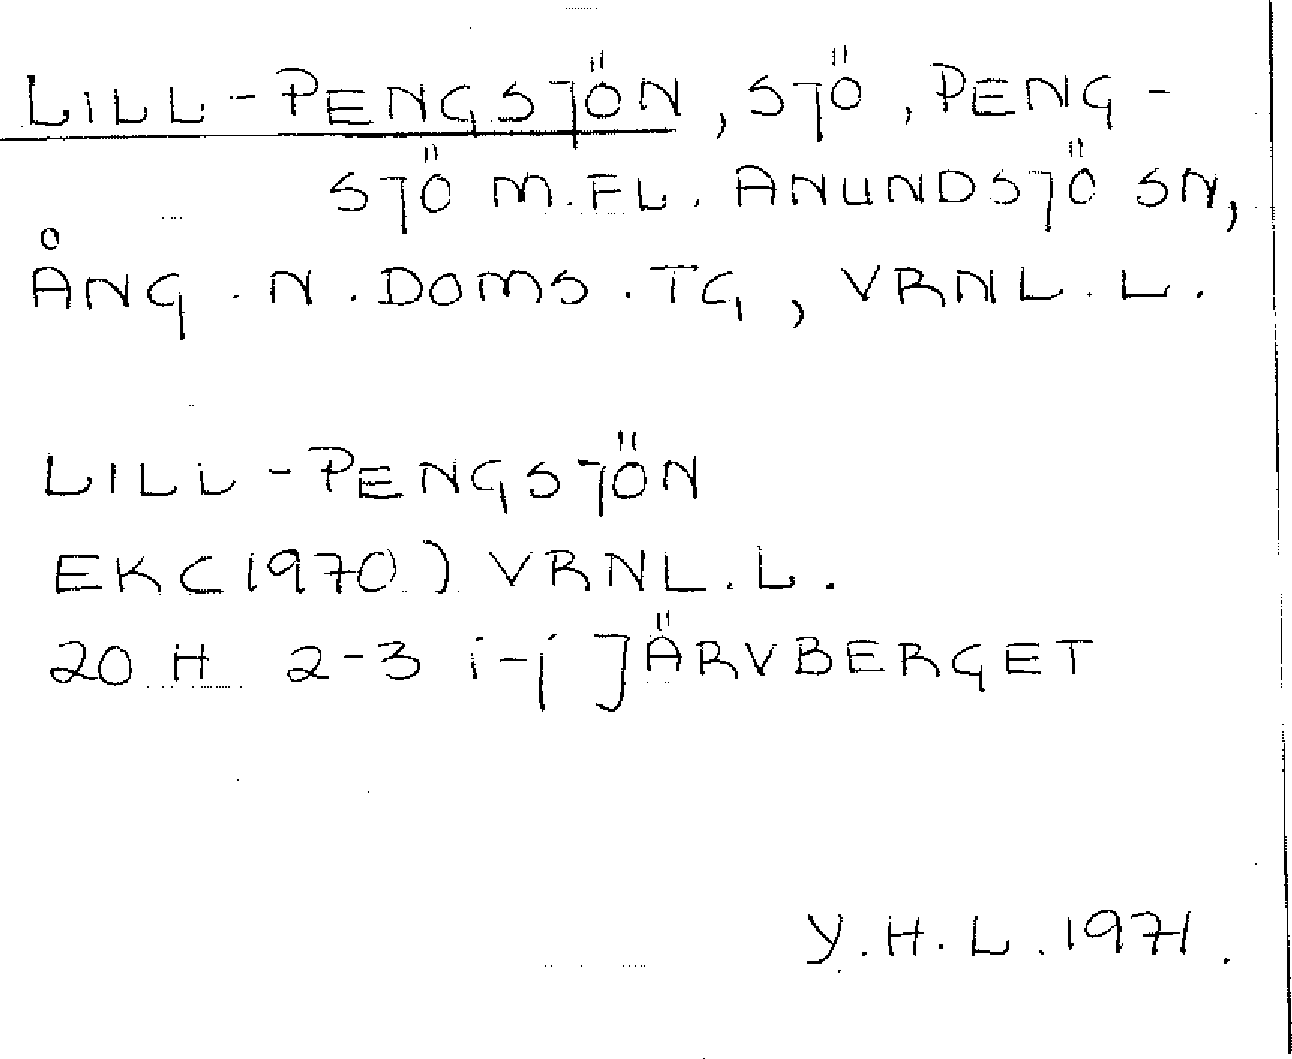 LILL-PENGSJÖN, SJÖ, PENG-
SJÖ M.FL. ANUNDSJÖ SN,
ÅNG. N. DOMS. TG, VRNL. L.
LILL-PENGSJÖN
EK(1970) VRNL. L.
20 H 2-3 i-j JÄRVBERGET
Y.H.L. 1971.